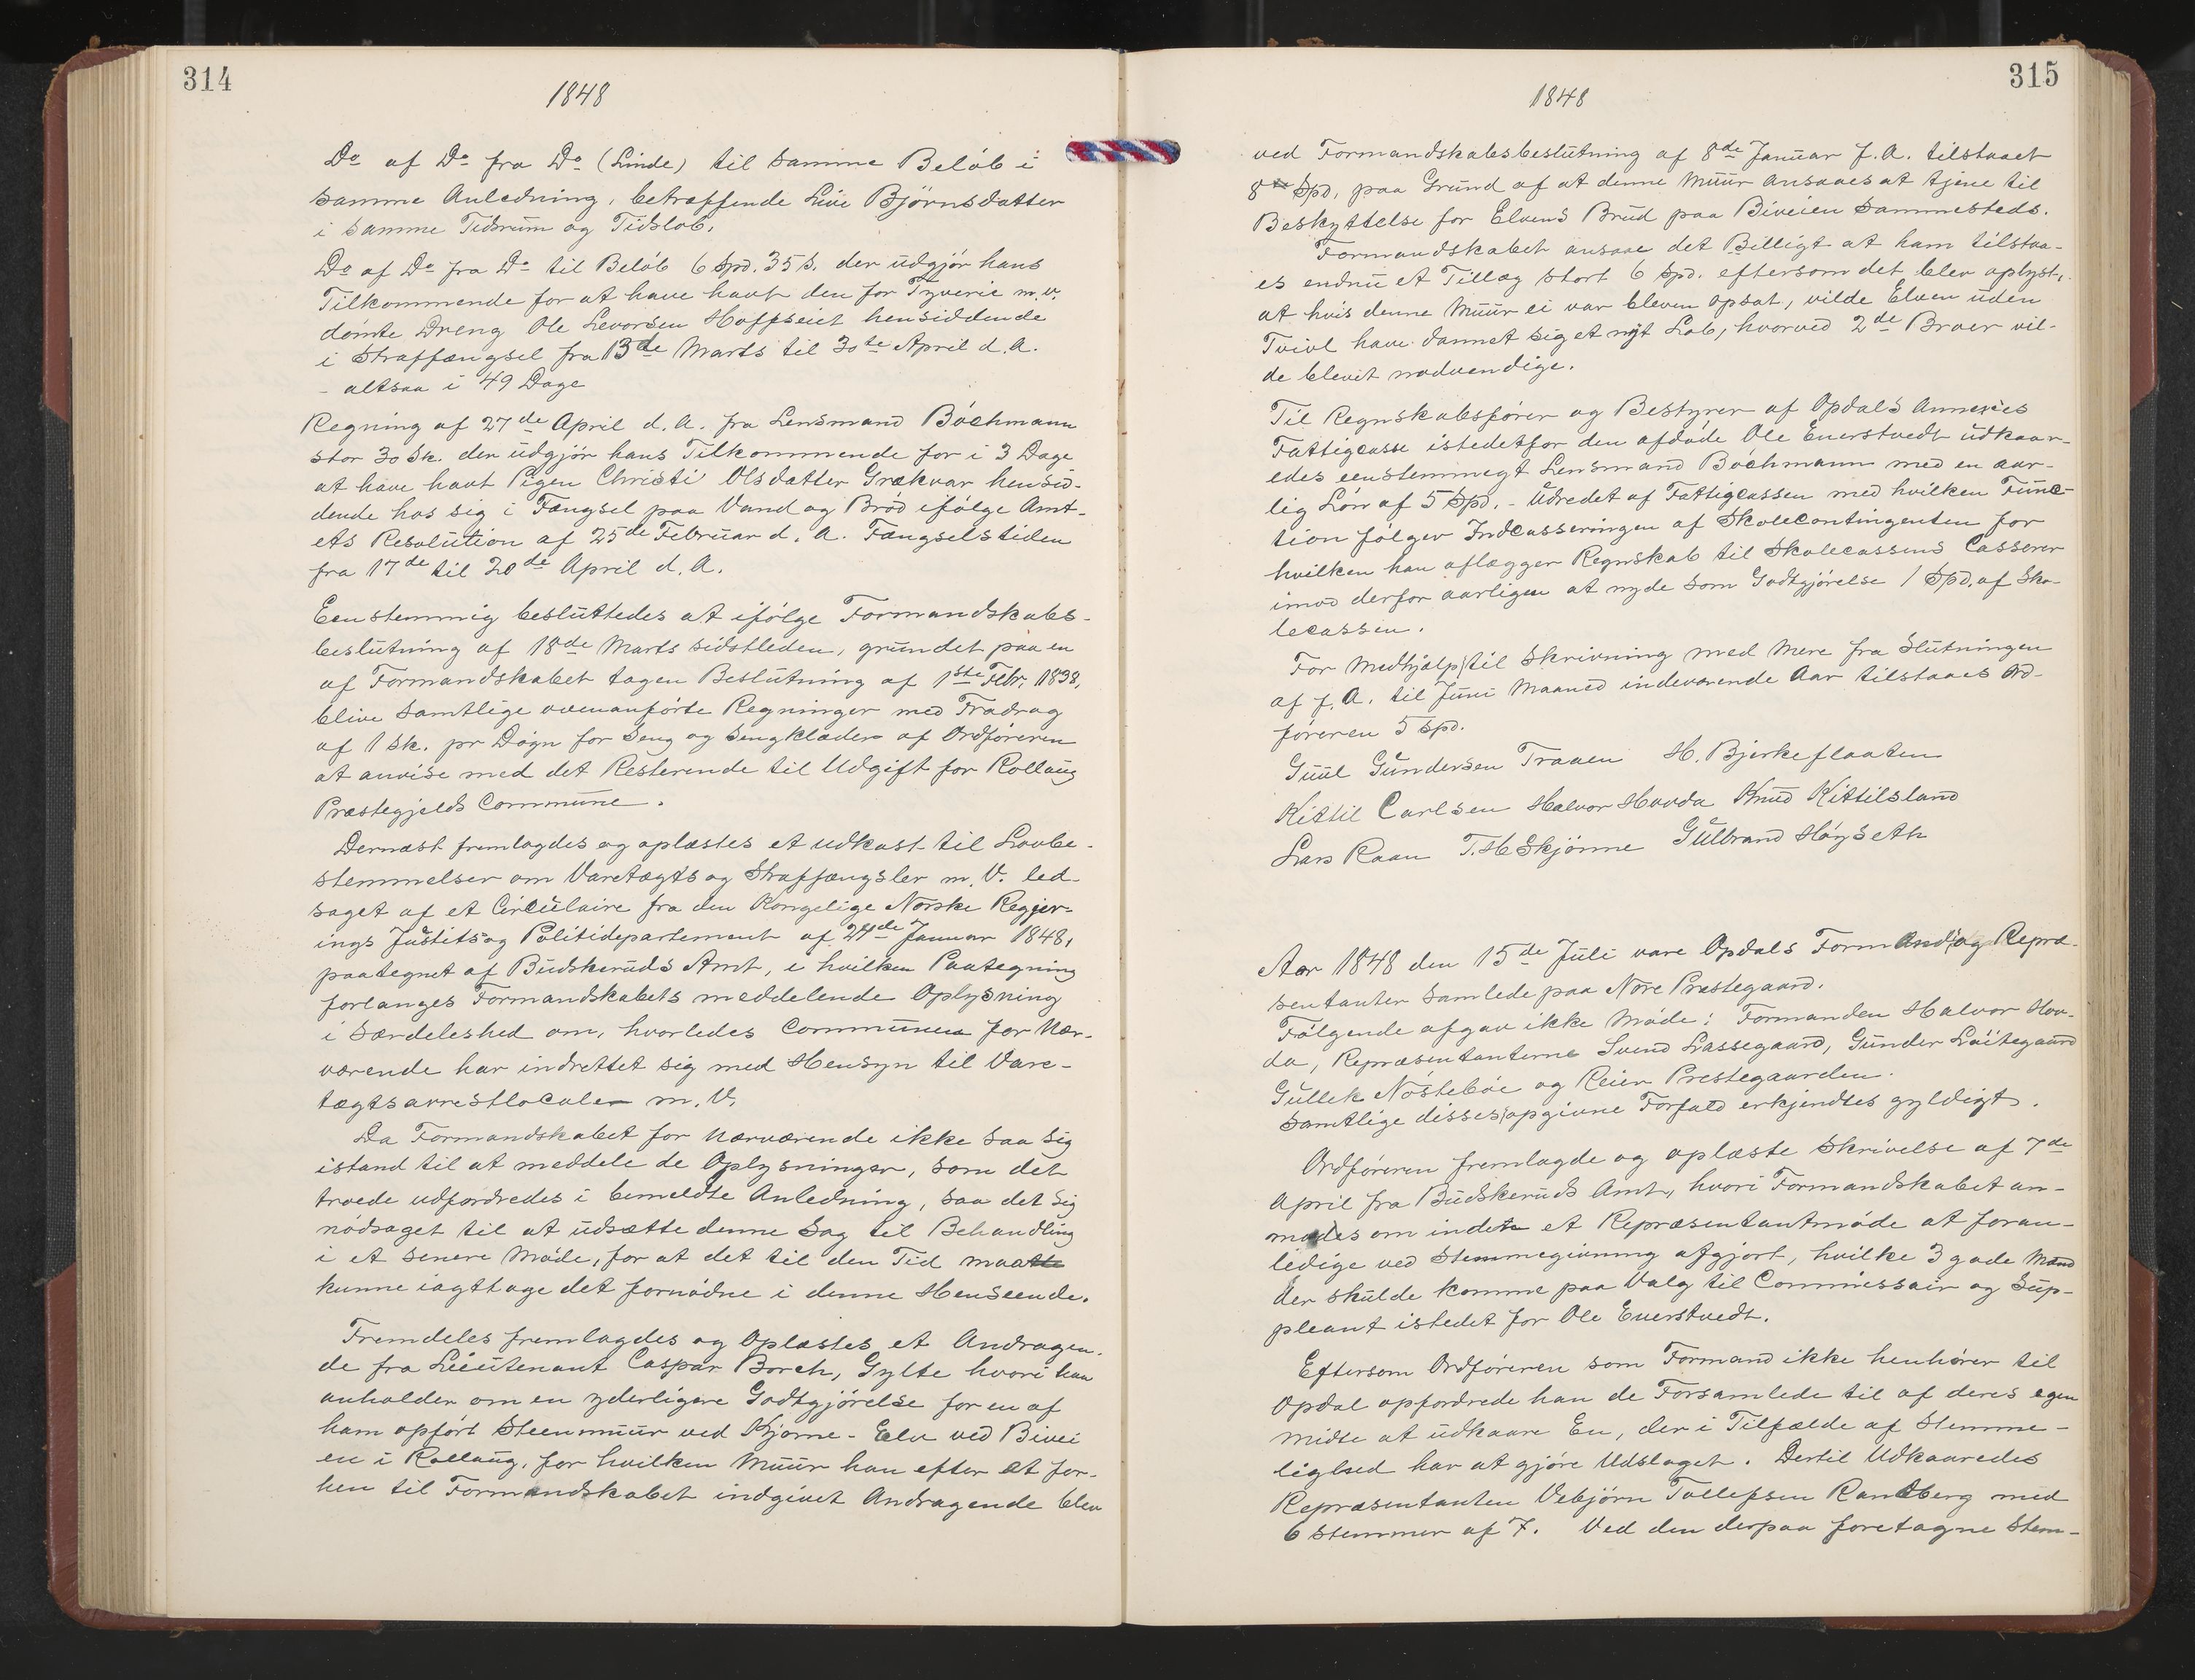 314
1848
Do af Do fra Do (Linde) til samme Beløb i
samme Anledning, betræffende Live Bjørnsdatter
i samme Tidsrum og Tidsløb.
Do af Do fra Do til Beløb 6 Spd. 35 s. der udgjør hans
Tilkommende for at have havt den for Tyverie m.v.
dømte Dreng Ole Levorsen Hoffseiet hensiddende
i Straffængsel fra 13de Marts til 30te April d.A.
- altsaa i 49 Dage
Regning af 27de April d.A. fra Lensmand Bóchmann
stor 30 Sk. der udgjør hans Tilkommende for i 3 Dage
at have havt Pigen Christi Olsdatter Grækvar hensid-
dende hos sig i Fængsel paa Vand og Brød ifølge Amt-
ets Resolution af 25de Februar d.A. Fængselstiden
fra 17de til 20de April d.A.
Eenstemmig besluttedes at ifølge Formandskabs-
beslutning af 18de Marts sidstleden, grundet paa en
af Formandskabet tagen Beslutning af 1ste Febr. 1838,
blive samtlige ovenanførte Regninger med Fradrag
af 1 Sk. pr Døgn for Seng og Sengklæder af Ordføreren
at anvise med det Resterende til Udgift for Rollaug
Præstegjelds Commune.
Dernæst fremlagdes og oplæstes et udkast til Lovbe-
stemmelser om Varetægts og Straffængsler m.V. led-
saget af et Circulaire fra den Kongelige Norske Regjer-
ings Justits og Politidepartement af 24de Januar 1848,
paategnet af Budskeruds Amt, i hvilken Paategning
forlanges Formandskabets meddelende Oplysning
i Særdeleshed om, hvorledes Communen for Nær-
værende har indrettet sig med Hensyn til Vare-
tægtsarrestlocaler m.V.
Da Formandskabet for Nærværende ikke saa sig
istand til at meddele de Oplysninger, som det
troede udfordredes i bemeldte Anledning, saa det sig
nødsaget til at udsætte denne Sag til Behandling
i et senere Møde, for at det til den Tid maatte
kunne iagttage det fornødne i denne Henseende.
Fremdeles fremlagdes og Oplæstes et Andragen-
de fra Lieutenant Caspar Borch, Gylte hvori han
anholder om en yderligere Godtgjørelse for en af
ham opført Steenmuur ved Kjorne-Elv ved Bivei
en i Rollaug, for hvilken Muur han efter et for-
hen til Formandskabet indgivet Andragende blev
315
1848
ved Formandskabsbeslutning af 8de Januar f.A. tilstaaet
8 Spd. paa Grund af at denne Muur ansaaes at tjene til
Beskyttelse for Elvens Brud paa Biveien sammesteds.
Formandskabet ansaae det Billigt at ham tilstaa-
es endnu et Tillæg stort 6 Spd. eftersom det blev oplyst,
at hvis denne Muur ei var bleven opsat, vilde Elven uden
Tvivl have dannet sig et nyt Løb, hvorved 2de Broer vil-
de blevet nødvendige.
Til Regnskabsfører og Bestyrer af Opdals Annexes
Fattigcasse istedetfor den afdøde Ole Enerstvedt udkaar-
edes eenstemmigt Lensmand Bóchmann med en aar-
lig Løn af 5 Spd. - Udredet af Fattigcassen med hvilken Func-
tion følger Indcasseringen af Skolecontingenten for
hvilken han aflægger Regnskab til Skolecassens Casserer
imod derfor aarligen at nyde som Godtgjørelse 1 Spd. af Sko-
lecassen.
For Medhjælp til Skrivning med Mere fra Slutningen
af f.A. til Juni Maaned indeværende Aar tilstaaes Ord-
føreren 5 Spd.
Guul Gundersen Traaen H. Bjerkeflaaten
Kittil Carlsen Halvor Hovda Knud Kittilsland
Lars Raaen T.H Skjønne Gulbrand Høyseth
Aar 1848 den 15de Juli vare Opdals Formænd og Repræ-
sentanter samlede paa Nore Præstegaard.
Følgende afgav ikke Møde: Formanden Halvor Hov-
da, Repræsentanterne Svend Lassegaard, Gunder Løitegaard
Gullek Nøstebøe og Reier Prestegaarden.
Samtlige disses opgivne Forfald erkjendtes gyldigt.
Ordføreren fremlagde og oplæste Skrivelse af 7de
April fra Budskeruds Amt, hvori Formandskabet an-
modes om inden et Repræsentantmøde at foran-
ledige ved Stemmegivning afgjort, hvilke 3 gode Mænd
der skulde komme paa Valg til Commissair og Sup-
pleant istedet for Ole Enerstvedt.
Eftersom Ordføreren som Formand ikke henhører til
Opdal opfordrede han de Forsamlede til af deres egen
Midte at udkaare En, der i Tilfælde af Stemme-
lighed har at gjøre Udslaget. Dertil Udkaaredes
Repræsentanten Vebjørn Tollefsen Randberg med
6 Stemmer af 7. Ved den derpaa foretagne Stem-